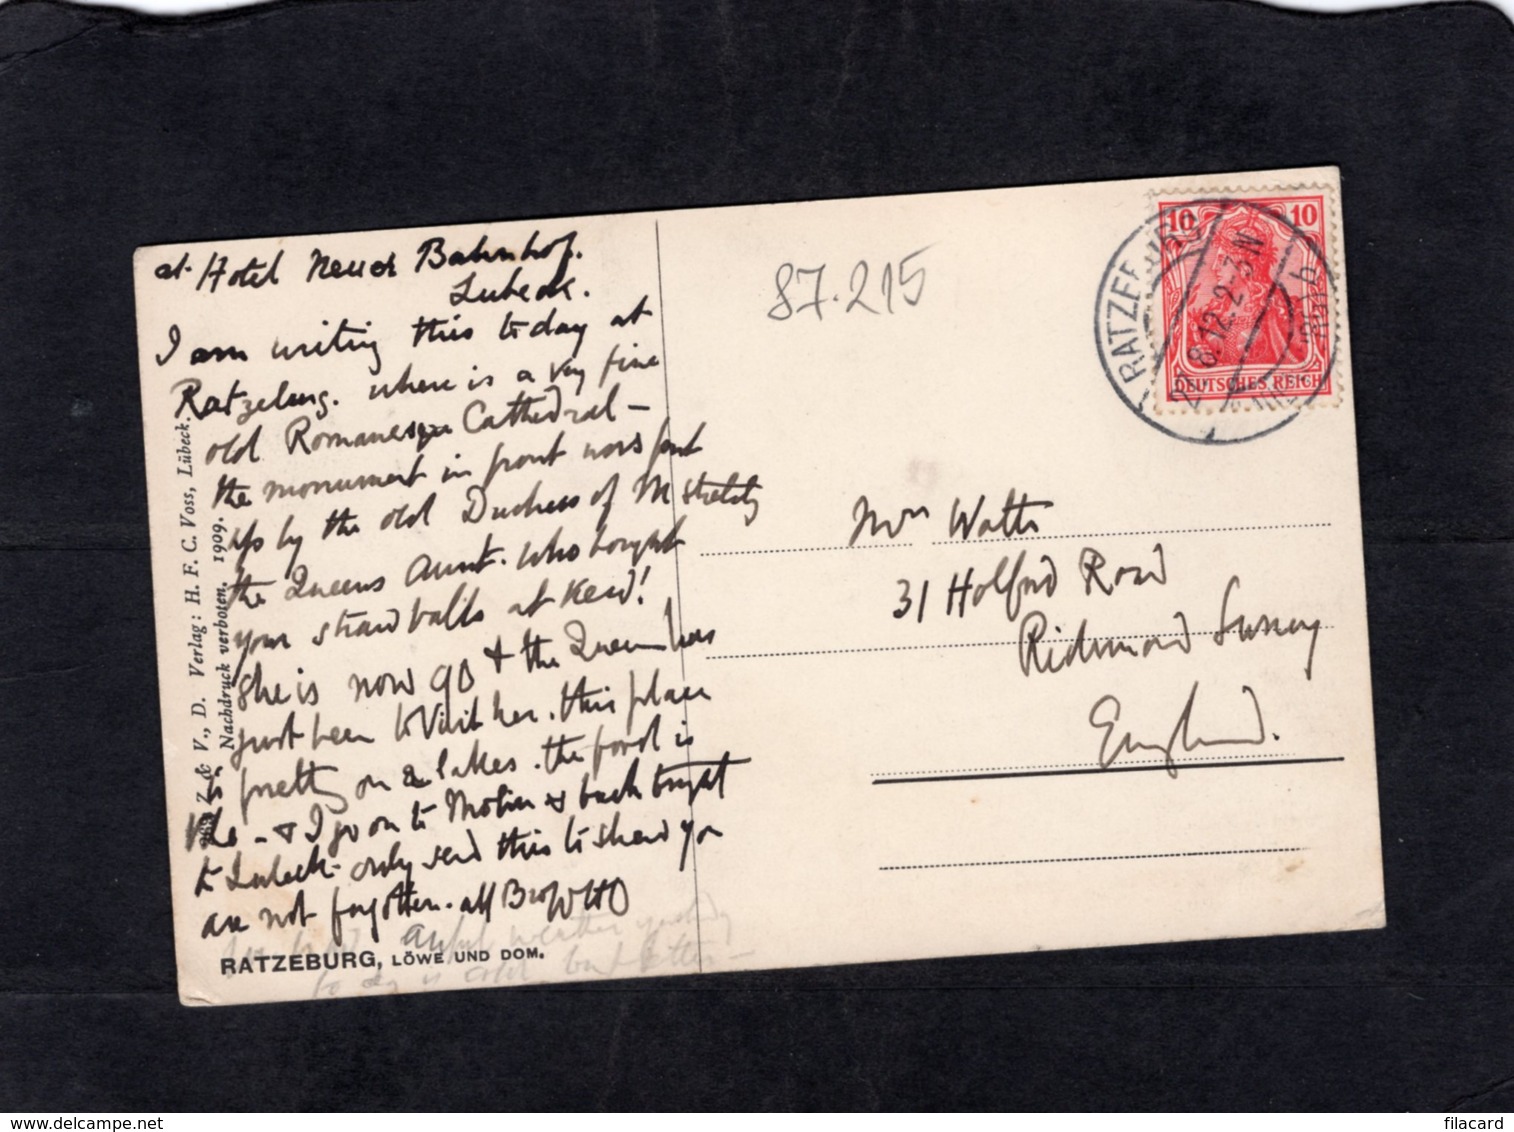 at Hotel Neuer Bahnhof.
Lubeck.
I am writing this today at
Ratzeburg. where is a very fine
old Romanesque Cathedral –
the monument in front was put
up by the old Duchess of M Strelitz
the Queens Aunt. who bought
your straw balls at Kew!
She is now 90 & the Queen has
just been to visit her. this place
is pretty on a lakes. the food is
& I go on to Molln & back tonight
to Lubeck – only send this to shew you
are not forgotten. aff Bro WHO
awful weather yesterday
to day is cold but better –
RATZEBURG, LÖWE UND DOM.
Z. & V., D. Verlag: H. F. C. Voss, Lübeck.
Nachdruck verboten. 1909.
87.215
10 10
DEUTSCHES REICH
RATZEBURG
27.8.12.2-3N
Mrs Watts
31 Holford Road
Richmond Surrey
England.
filacard
My website name is filacard on delcampe.net